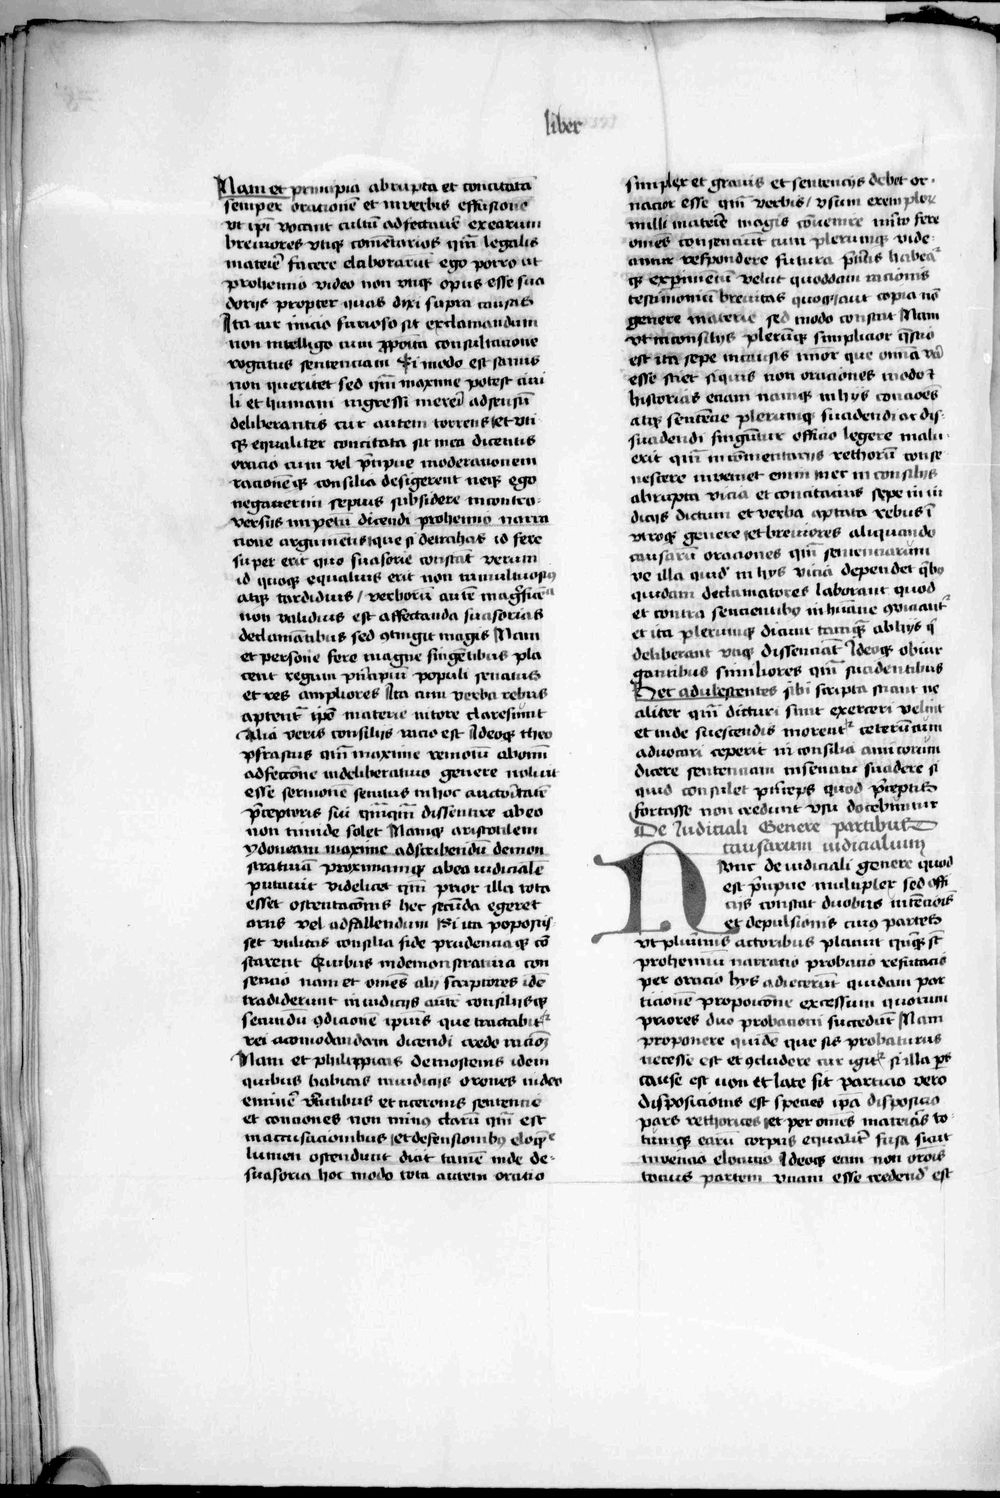 liber
Nam et principia abrupta et concitata
semper oracionē et in verbis effusionē
vt ip̄i vocant cultū adfectauē ex earum
breuiores vtiq̢ com̄etarios qm̄ legalis
materiē facere elaborarūt ego porro ut
prohemio video non vtiq̢ opus esse sua
dorijs propter quas dixi supra causas
Ita cur inicio furioso sit exclamandum
non intelligo cum ꝓposita consultacione
rogatus sentenciam si modo est sanus
non queritet sed qm̄ maxime potest ciui
li et humani ingressi mereri adsensū
deliberantis cur autem torrens et vti
q̢ equaliter concitata sit in ea dicentis
oracio cum vel p̄cipue moderacionem
racionēq̢ consilia desigerent neq̢ ego
negauerim sepius subsidere in contro-
versiis impetū dicendi prohemio narra
cione argumētis que si detrahas id fere
super erit quo suasorie constāt verum
id quoq̢ equalius erit non tumultuosiꝰ
atq̢ tardidius / verborū autē mag̅ficēa
non validius est affectanda suasorias
declamātibus sed ꝯtingit magis Nam
et persone fere magne fingētibus pla
cent regum principū populi senatus
et res ampliores Ita cum verba rebus
aptent̄ ip̄o materie nitore clarescunt
Alia veris consilijs racio est Ideoq̢ theo
pfrastus qm̄ maxime remotū ab om̄i
adfectōne in deliberatiuo genere voluit
esse sermonē secutus in hoc auctoritatē
p̄ceptoris sui qm̄qm̄ dissentire ab eo
non timide solet Namq̢ aristotilem
ydoneam maxime ad scribendū demon
stratiuā proximamq̢ ab ea iudicialē
putauit videlicet qm̄ prior illa tota
esset ostentacōnis hec secūda egeret
artis vel ad fallendum si ita poposcis-
set vtilitas consilia fide prudenciaq̢ cō
starent Quibus in demonstratiua con
sencio nam et om̄es alij scriptores idē
tradiderunt in iudicijs autē consilijsq̢
secundū ꝯdicionē ipsius que tractabitᷣ
rei acomodandam dicendi credo racionē
Nam et philippicas demostenis idem
quibus habitas in iudicijs orōnes video
eminē virtutibus et ciceronis sentencie
et conciones non minꝰ clarū qm̄ est
in accusacionibus et defensionibꝰ eloq̄e
lumen ostendunt dicit tamē inde de-
suasoria hoc modo tota autem oratio
simplex et grauis et sentencijs debet or-
nacior esse qm̄ verbis / vsum exemplor̢
milli materiē magis cōuenire m̄ito fere
om̄es consenciūt cum plerumq̢ vide-
antur respondere futura p̄titis habeaᷣ
q̢ experimētū velut quoddam racionis
testimoniū breuitas quoq̢ aut copia nō
genere materie sed modo constat Nam
vt in consilijs plerūq̢ simplicior q̄stio
est ita sepe in causis minor que om̄ia va
esse sciet siquis non oraciones modo ⁊
historias eciam namq̢ in hys concioēs
atq̢ sentēcie plerumq̢ suadendi ac dis-
suadendi fingūtur officio legere malu-
erit qm̄ in cōmentarijs rethorū conse
nescere inveniet enim nec in consilijs
abrupta vicia et concitacius sepe in iu
dicijs dictum et verba aptata rebus ī
vtroq̢ genere et breuiores aliquando
causarū oraciones qm̄ sentenciarum
ve illa quid̄ in hys vicia dependet q̄bꝰ
quidam declamatores laborant quod
et contra sencientibꝰ inhūane ꝯuiciantᷣ
et ita plerumq̢ dicūt tamq̄ ab hys q̄
deliberant vtiq̢ dissenciāt Ideoq̢ obiur
gantibus similiores qm̄ suadentibus
Hec adulescentes sibi scripta sciant ne
aliter qm̄ dicturi sunt exerceri velint
et in de suescendis morentᷣ ceterū cum
aduocari ceperit in consilia amicorum
dicere sentenciam in senatu suadere si
quid consulet princeps quod p̄ceptis
fortasse non credunt vsu docebuntur
De Iudiciali Genere partibus
causarum iudicialium
Nunc de iudiciali genere quod
est p̄cipue multiplex sed offi
cijs constat duobus intēcionis
et depulsionis cuiꝰ partes
vt plurimis actoribus placuit quinq̢ st̄
prohemiū narratio probatio refutacio
per oracio hys adiecerūt quidam par
ticionē propocōne excessum quorum
priores duo probacioni succedūt Nam
proponere quidē que sis probaturus
necesse est et ꝯcludere cur igitᷣ si illa ps
cause est non et late sit particio vero
disposicionis est species ip̄a disposicio
pars rethorices et per om̄es materias to-
tumq̢ earū corpus equalitᷣ fusa sicut
inuencio elocucio Ideoq̢ eam non orōis
tocius partem vnam esse credend̄ est